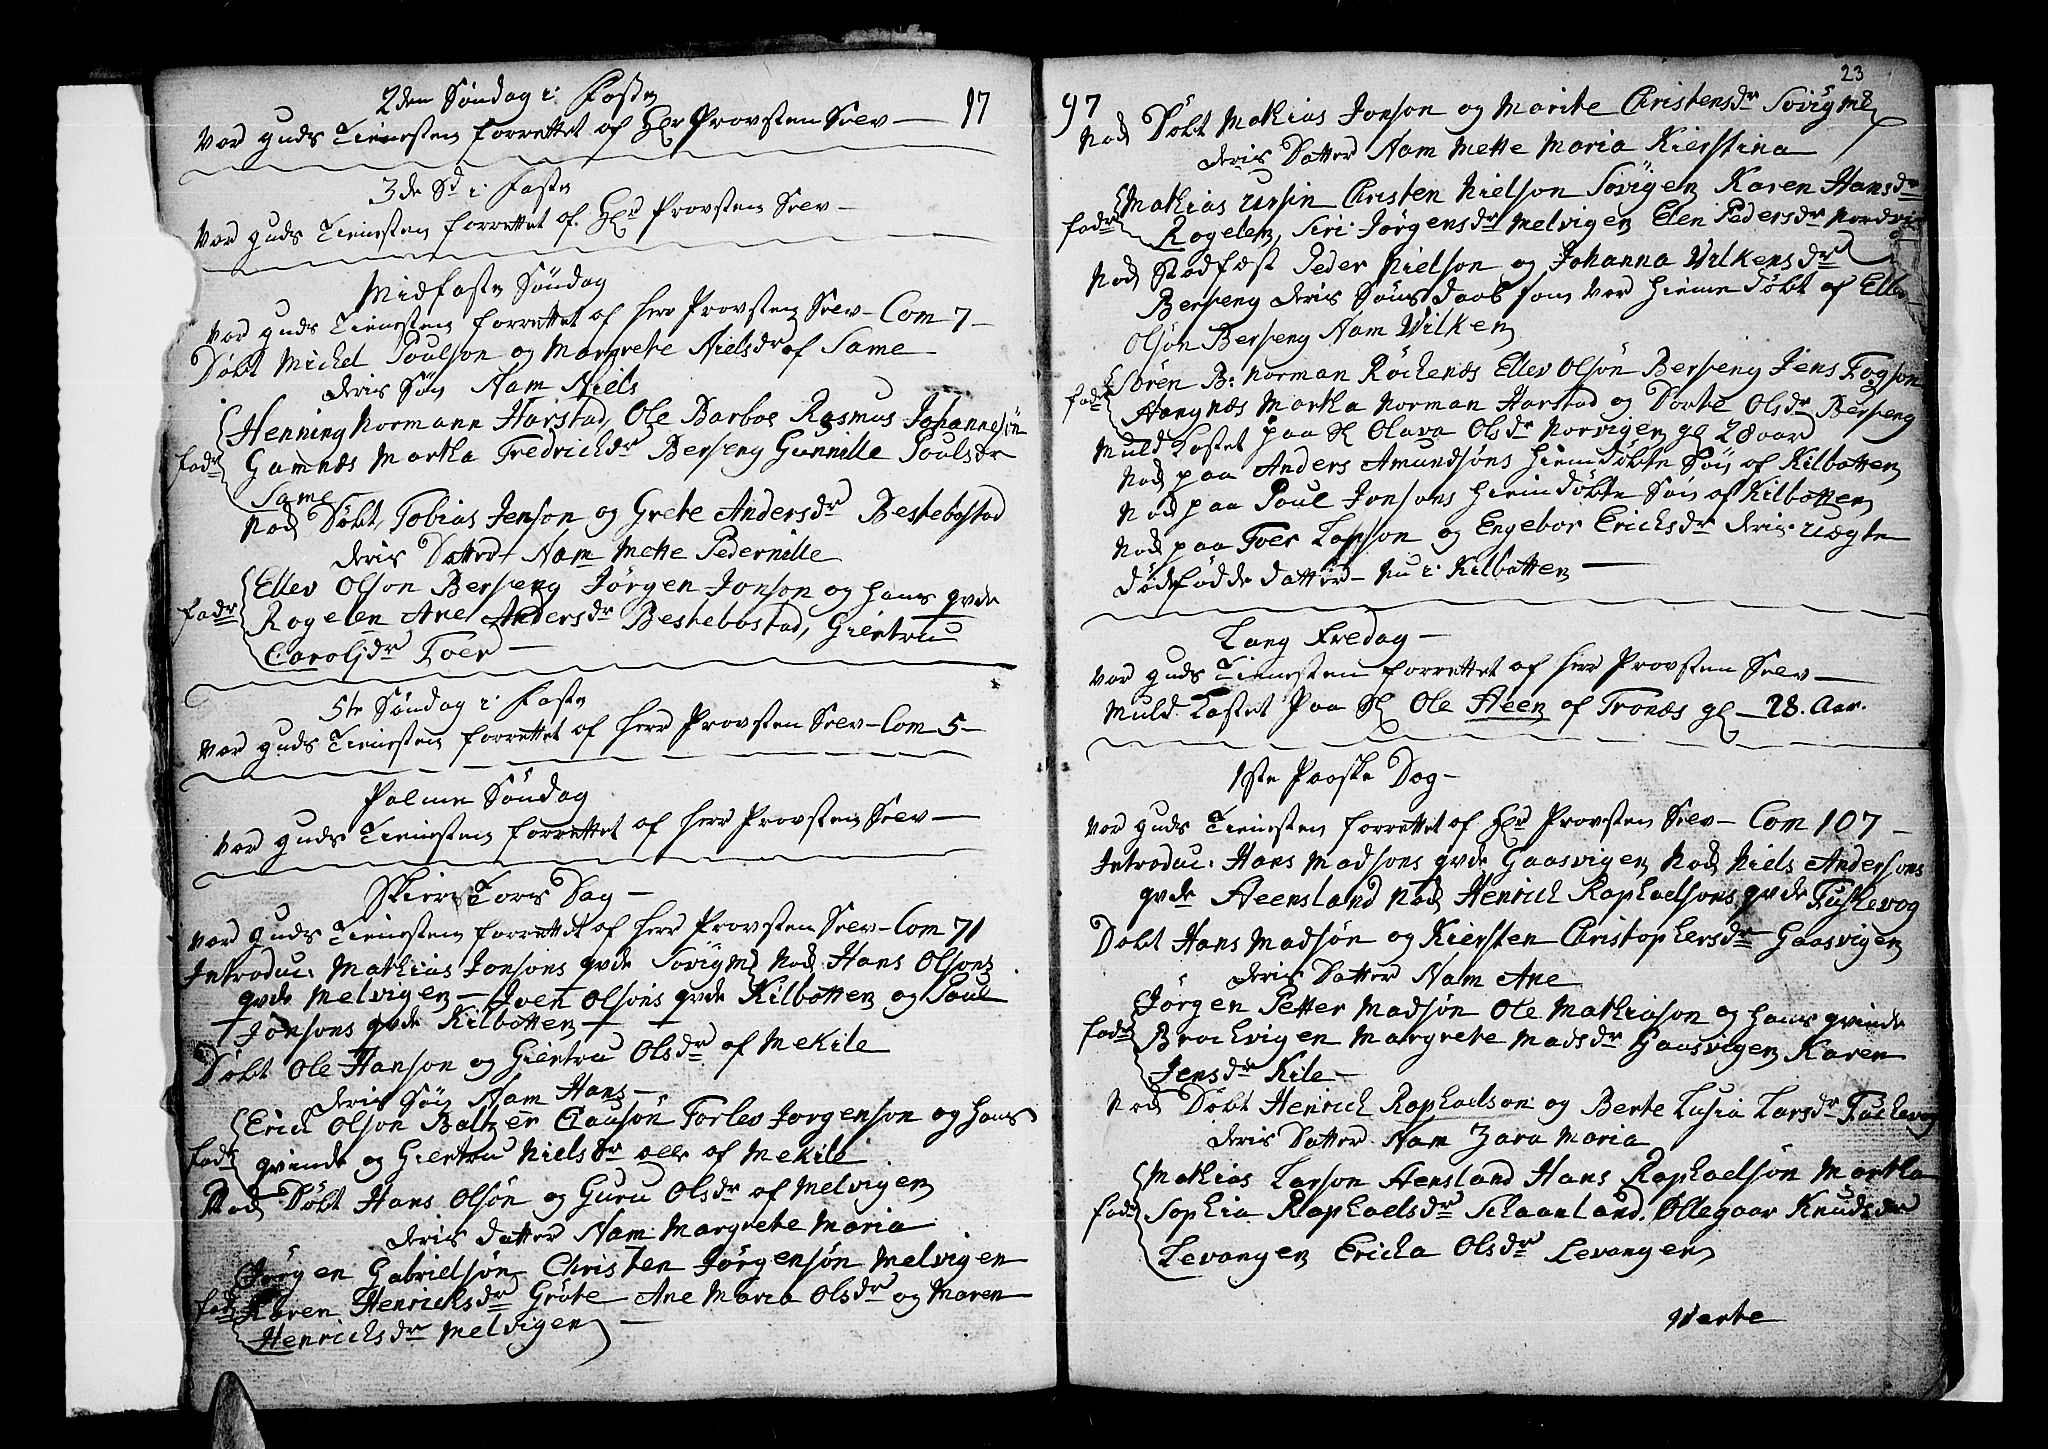 2den Søndag i Faste
17
Var guds Tienesten forrettet af Hr Provsten Selv —
3de Sd i Faste
Var guds Tienesten forrettet af Hr Provsten Selv —
Midfaste Søndag
Var guds Tienesten forrettet af Herr Provsten Selv — Com 7 —
Døbt Michel Poulson og Margrete Nielsdr af Same
deris Søn Nam Niels
Henning Normann Harstad, Ole Darboe Rasmus Johannesøn
fadr Gamnæs Martha Fredrichdr Berseng Gunnille Poulsdr
Same
Nod Døbt Tobias Jenson og Grete Andersdr Beskebostad
deris Datter Nam Mette Pedernille
Ellev Olson Berseng Jørgen Jonson og hans qvde
fadr Rogelen Ane Andersdr Beskebostad, Giertru
Carolidr Foer —
5te Søndag i Faste
Var guds Tienesten forrettet af Herr Provsten Selv — Com 5 —
Palme Søndag
Var guds Tienesten forrettet af Herr Provsten Selv —
Skiers Tors Dag —
Var guds Tienesten forrettet af Herr Provsten Selv — Com 71
Introduc: Mathias Jonsons qvde Søvigen Nod Hans Olsons
qvde Melvigen — Iven Olsøns qvde Kilbotten og Poul
Jonsons qvde Kilbotten —
Døbt Ole Hanson og Giertru Olsdr af Mekile
deris Søn Nam Hans —
Erich Olson Baltzer Clausøn Torles Jorgenson og hans
fadr qvinde og Giertru Nielsdr alle af Mekile
Nod Døbt Hans Olsøn og Guru Olsdr af Melvigen
deris datter Nam Margrete Maria
Jørgen Gabrielsøn Christen Jørgensøn Melvigen
fadr Karen Henricksdr Grøte Ane Maria Olsdr og Maren
Henrichsdr Melvigen —
23
97
Nod Døbt Mathias Jonson og Marite Christensdr Søvigen
deris Datter Nam Mette Maria Kierstina
Mathias Ursin Christen Nielson Søvigen Karen Hansdr
fadr Rogelen, Siri Jørgensdr Melvigen Elen Pedersdr Nordvig
Nod Stadfæst Peder Nielson og Johanna Vilkensdr
Berseng deris Søns daab som var hieme døbt af Ellev
Olsøn Berseng Nam Vilken
Søren B: Norman Røckenæs Ellev Olsøn Berseng Jens Fogson
fadr Hangnæs Martha Norman Harstad og Dorte Olsdr Berseng
Muld Kastet paa Sl Olava Olsdr Norvigen gl 28 aar
Nod paa Anders Amundsøns hiemdøbte Søn af Kilbotten
Nod paa Poul Jonsons hiemdøbte Søn af Kilbotten
Nod paa Foer Larson og Engebor Ericksdr deris uægte
dødfødde datter — nu i Kilbotten —
Lang Fredag —
Var guds Tienesten forrettet af Herr Provsten Selv —
Muld Kastet Paa Sl Ole Aeen af Tronæs gl — 28. Aar.
1ste Paaske Dag —
Var guds Tienesten forrettet af Hr Provsten Selv — Com 107 —
Introduc: Hans Madsons qvde Gaasvigen Nod Niels Andersons
qvde Aeensland Nod Henrich Raphaelsons qvde Fuskevog
Døbt Hans Madsøn og Kiersten Christophersdr Gaasvigen
deris Datter Nam Ane
Jørgen Petter Madsøn Ole Mathiason og hans qvinde
fadr Brochvigen Margrete Madsdr Gaasvigen Karen
Jensdr Kile —
Nod Døbt Henrich Raphaelson og Berte Lusia Larsdr Fuskevog
deris Datter Nam Zara Maria
Mathias Larson Aensland Hans Raphaelsøn Martha
fadr Sophia Raphaelsdr Schaanland. Øllegaar Knudsdr
Levangen Ericha Olsdr Levangen
Verte